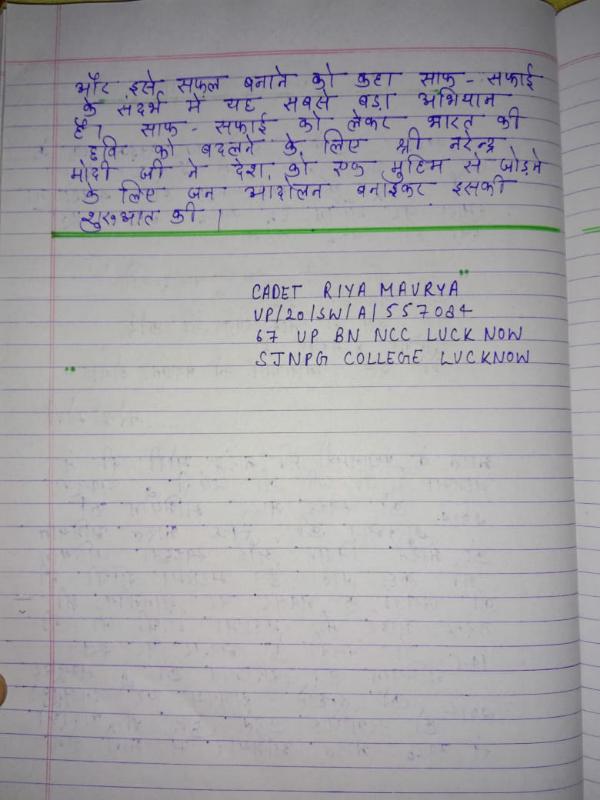 और इसे सफल बनाने को कहा साफ - सफाई
के संदर्भ में यह सबसे बड़ा अभियान
है। साफ - सफाई को लेकर भारत की
छवि को बदलने के लिए श्री नरेन्द्र
मोदी जी ने देश को एक मुहिम से जोड़ने
के लिए जन आंदोलन बनाईकर इसकी
शुरुआत की ।
CADET RIYA MAURYA
UP/20/SW/A/557084
67 UP BN NCC LUCKNOW
SJNPG COLLEGE LUCKNOW